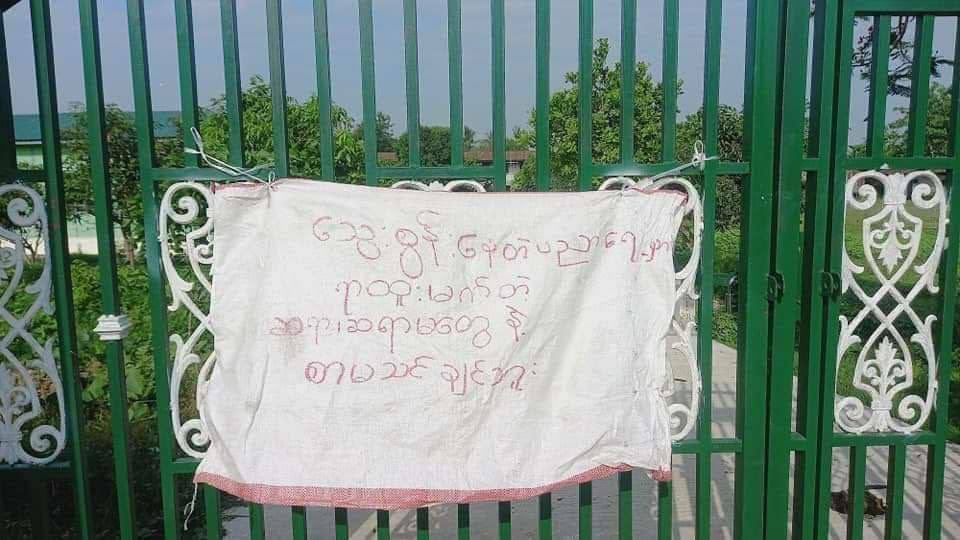 သွေးစွန်းနေတဲ့ပညာရေးမှာ
ရာထူးမက်တဲ့
ဆရာ၊ဆရာမတွေနဲ့
စာမသင်ချင်ဘူး